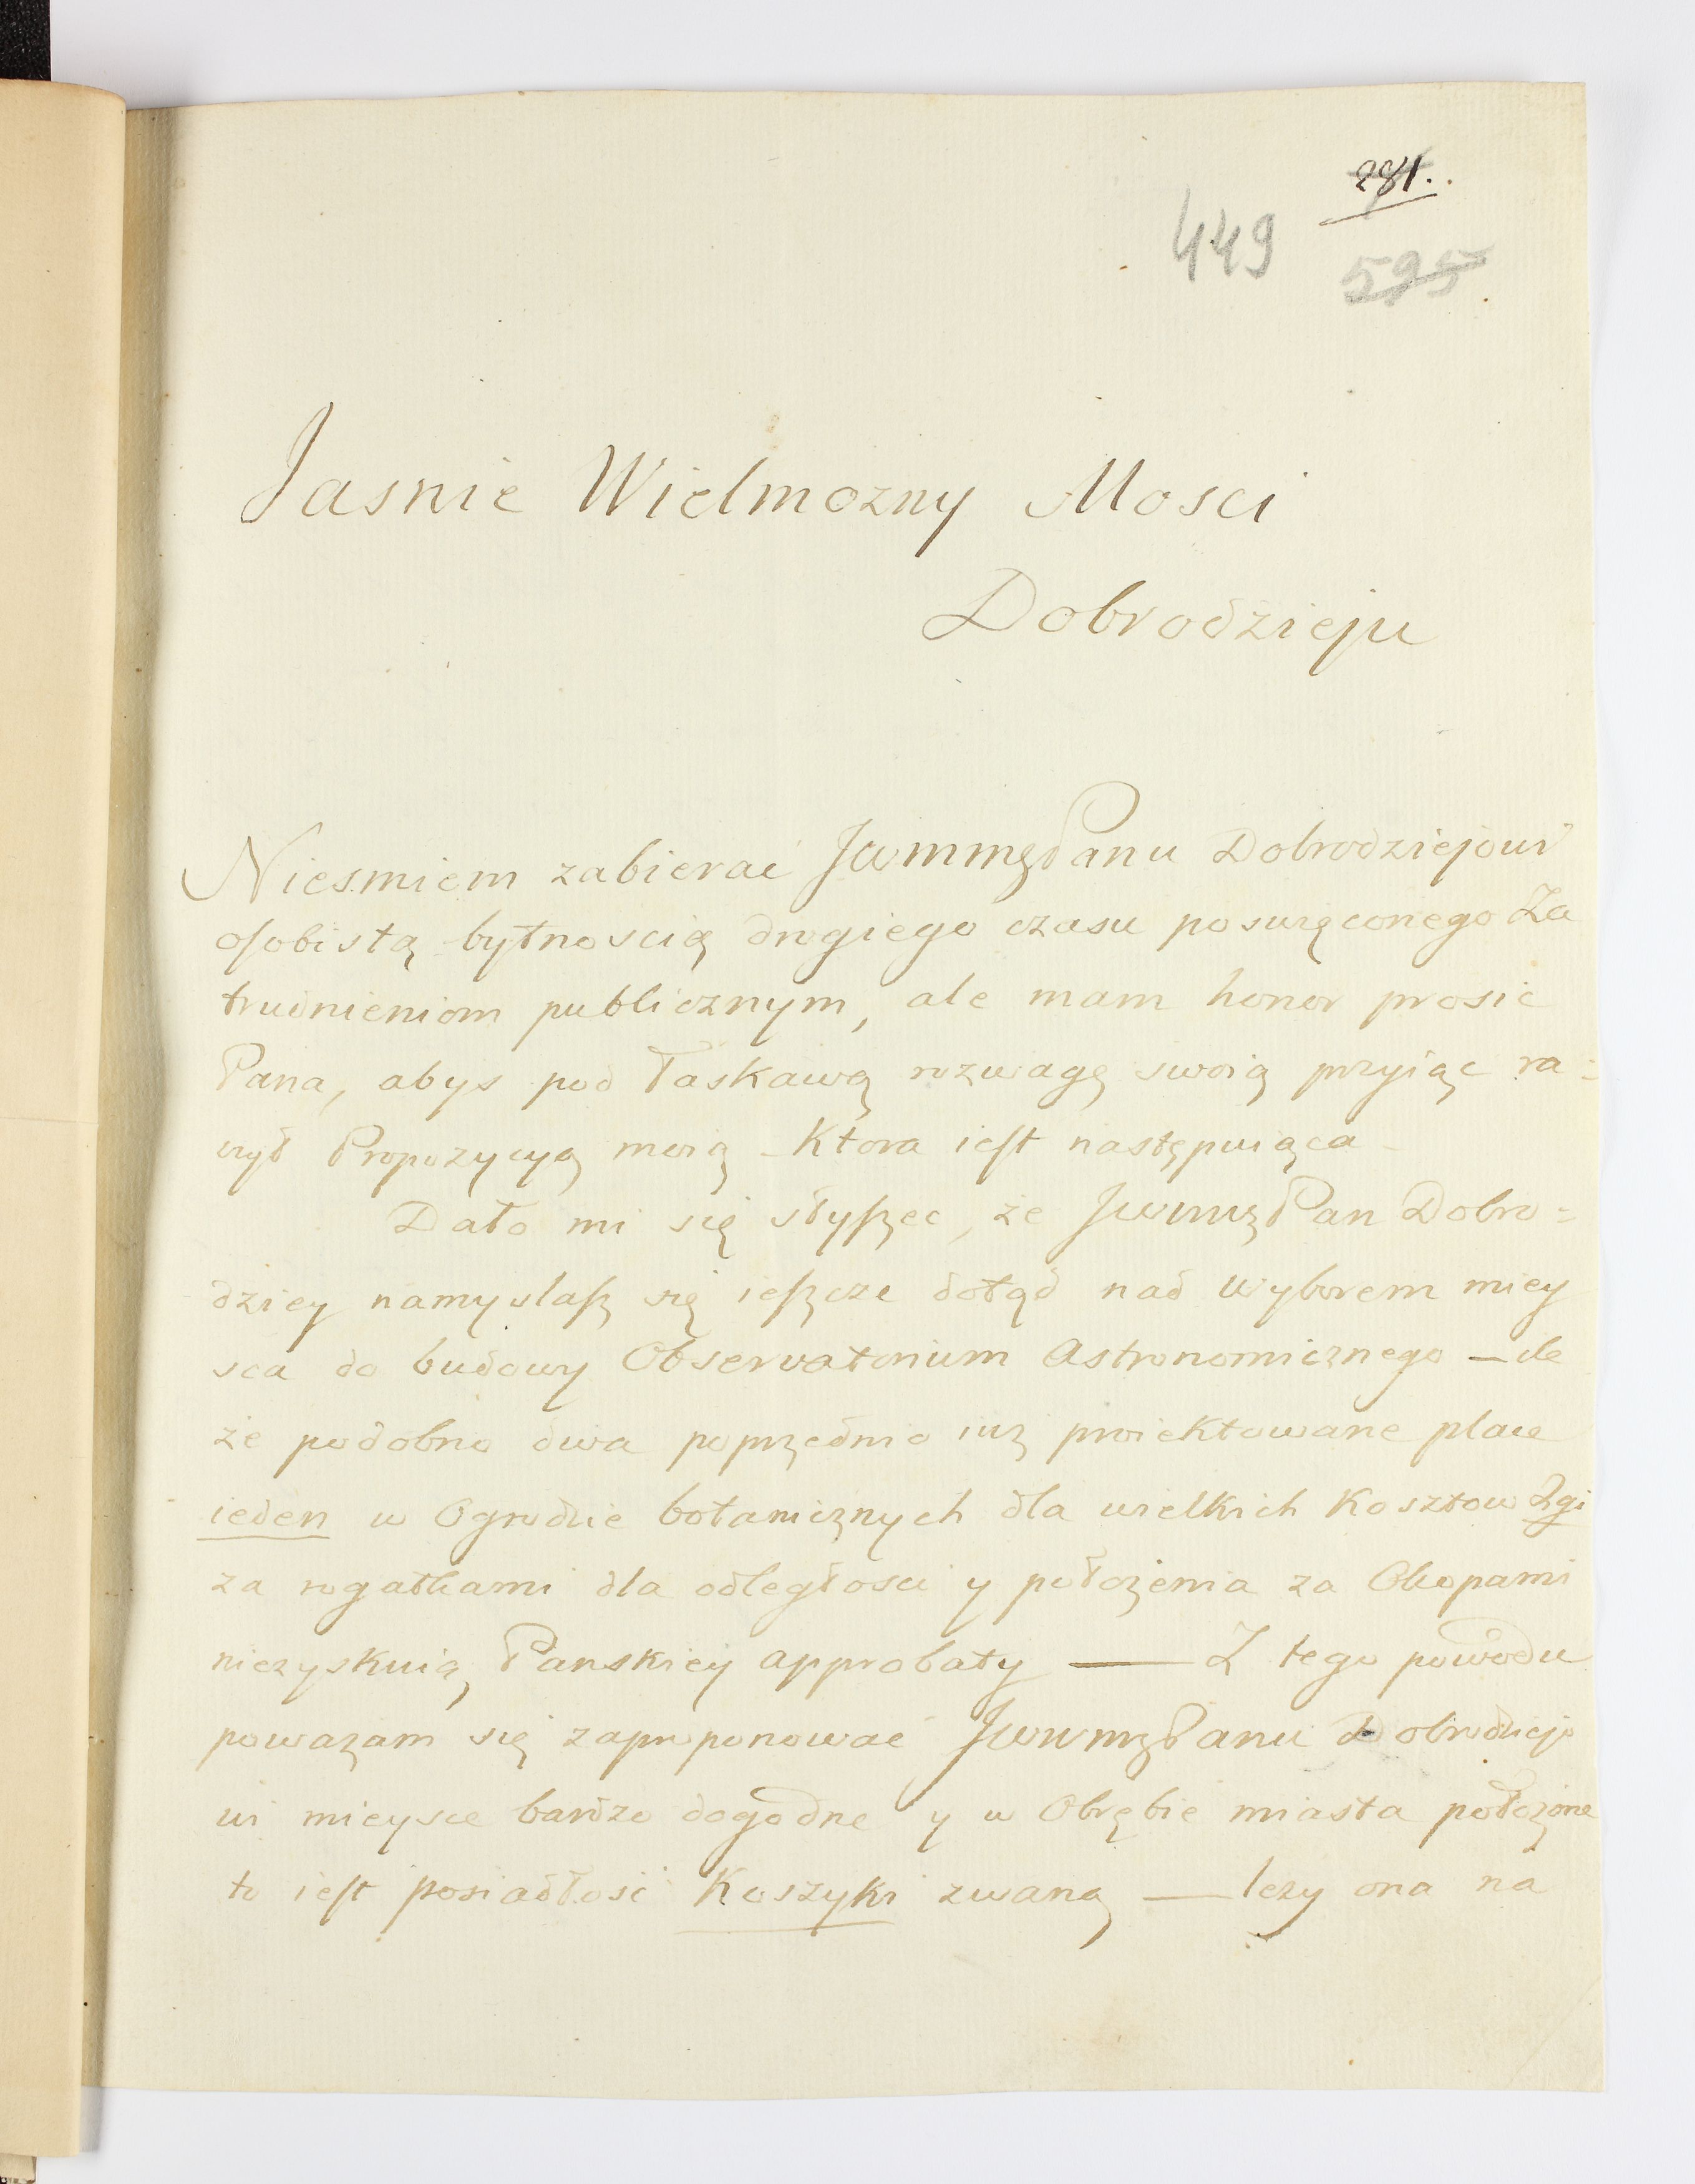 281.
449
595
Jasnie Wielmozny Mosci
Dobrodzieju
Niesmiem zabierać JWmmgPanu Dobrodziejowi
osobistą bytnoscią drogiego czasu poswięconego Za
trudnieniom publicznym, ale mam honor prosic
Pana, abys pod łaskawą rozwagę swoią przyiąc ra=
czył Propozycyą moią - Ktora iest następuiąca -
Dało mi się słyszec, że JWmgPan Dobro=
dziey namyslasz się ieszcze dotąd nad wyborem miey
sca do budowy Observatorium Astronomicznego — ile
że podobno dwa poprzednio iuz proiektowane place
ieden w Ogrodzie botanicznych dla wielkich Kosztow 2gi
za rogatkami dla odległosci y położenia za Okopami
niezyskuią Panskiey approbaty — Z tego powodu
powazam się zaproponowac JWmgPanu Dobrodziejo
wi mieysce bardzo dogodne y w Obrębie miasta położone
to iest posiadłosć Koszyki zwaną — lezy ona na